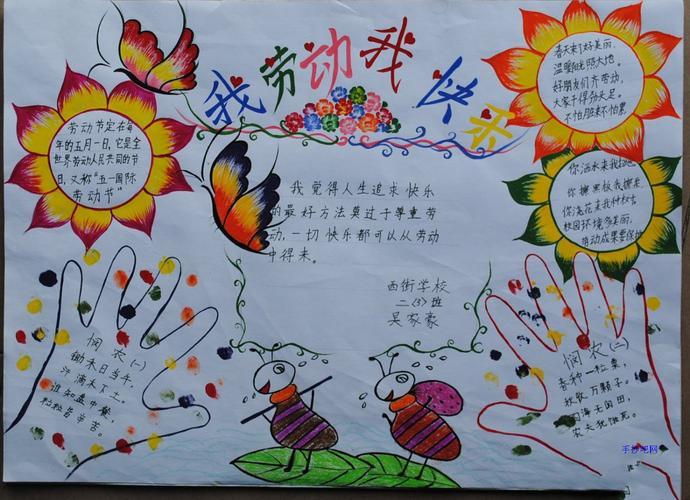 我劳动我快乐
劳动节定在每
年的五月一日,它是全
世界劳动人民共同的节
日,又称“五一国际
劳动节”
春天来了好美丽,
温暖阳光照大地。
好朋友们齐劳动,
大家干得劲头足。
不怕脏来不怕累
我觉得人生追求快乐
的最好方法莫过于尊重劳
动,一切快乐都可以从劳动
中得来。
西街学校
二〈3〉班
吴家豪
你洒水来我扫地
你擦黑板我擦桌
你浇花来我种
校园环境多美丽,
劳动成果要保护
悯农(一)
锄禾日当午,
汗滴禾下土。
谁知盘中餐,
粒粒皆辛苦。
悯农(二)
春种一粒粟,
秋收万颗子。
四海无闲田,
农夫犹饿死。
手抄吧网